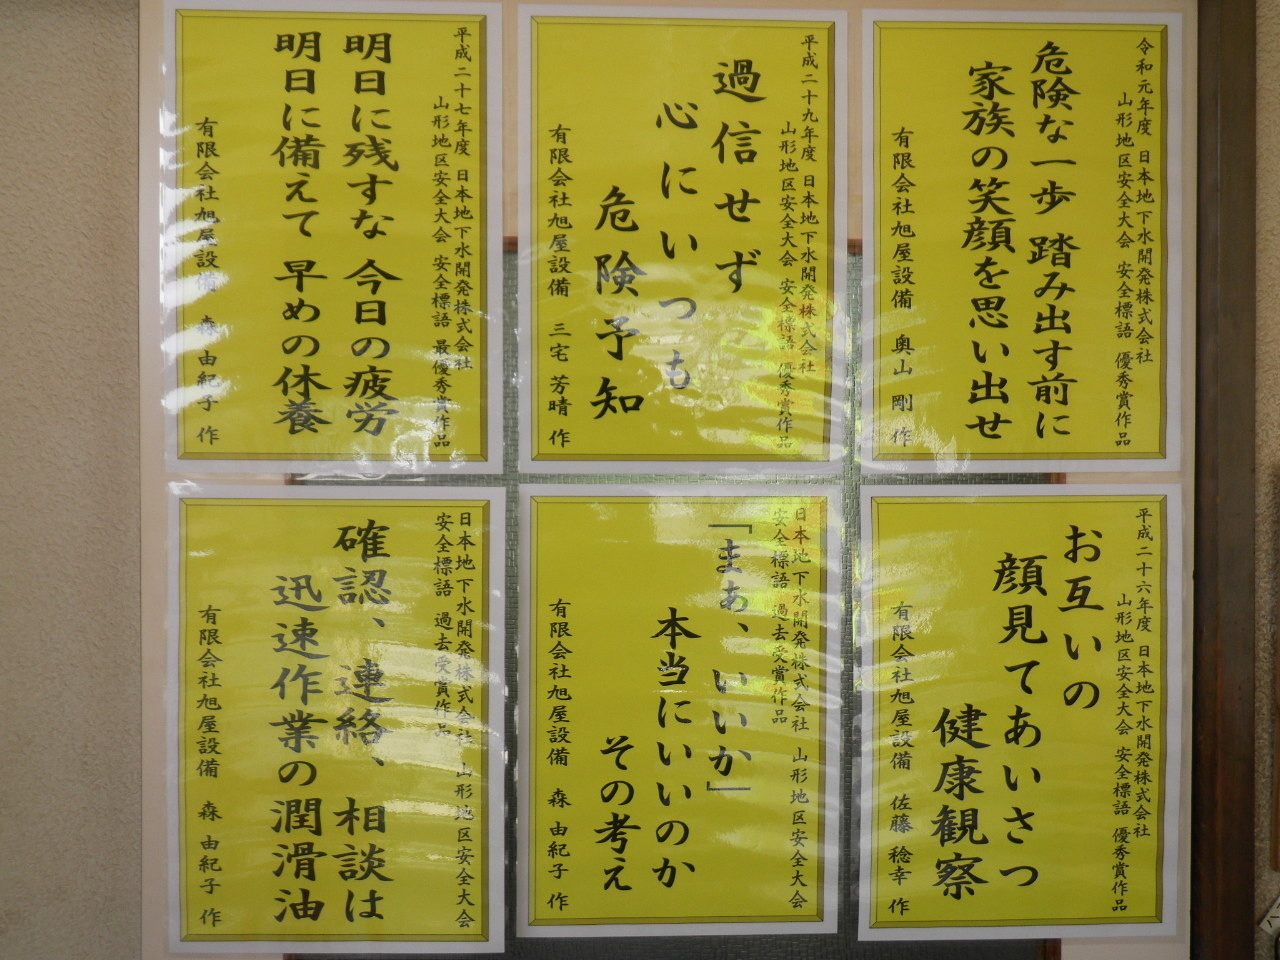 令和元年度 日本地下水開発株式会社
山形地区安全大会 安全標語 優秀賞作品
危険な一歩 踏み出す前に
家族の笑顔を思い出せ
有限会社旭屋設備 奥山 剛 作
平成二十九年度 日本地下水開発株式会社
山形地区安全大会 安全標語 優秀賞作品
過信せず
心にいつも
危険予知
有限会社旭屋設備 三宅 芳晴 作
平成二十七年度 日本地下水開発株式会社
山形地区安全大会 安全標語 最優秀賞作品
明日に残すな 今日の疲労
明日に備えて 早めの休養
有限会社旭屋設備 森 由紀子 作
平成二十六年度 日本地下水開発株式会社
山形地区安全大会 安全標語 優秀賞作品
お互いの
顔見てあいさつ
健康観察
有限会社旭屋設備 佐藤 稔幸 作
日本地下水開発株式会社 山形地区安全大会
安全標語 過去受賞作品
「まぁ、いいか」
本当にいいのか
その考え
有限会社旭屋設備 森 由紀子 作
日本地下水開発株式会社 山形地区安全大会
安全標語 過去受賞作品
確認、連絡、相談は
迅速作業の潤滑油
有限会社旭屋設備 森 由紀子 作